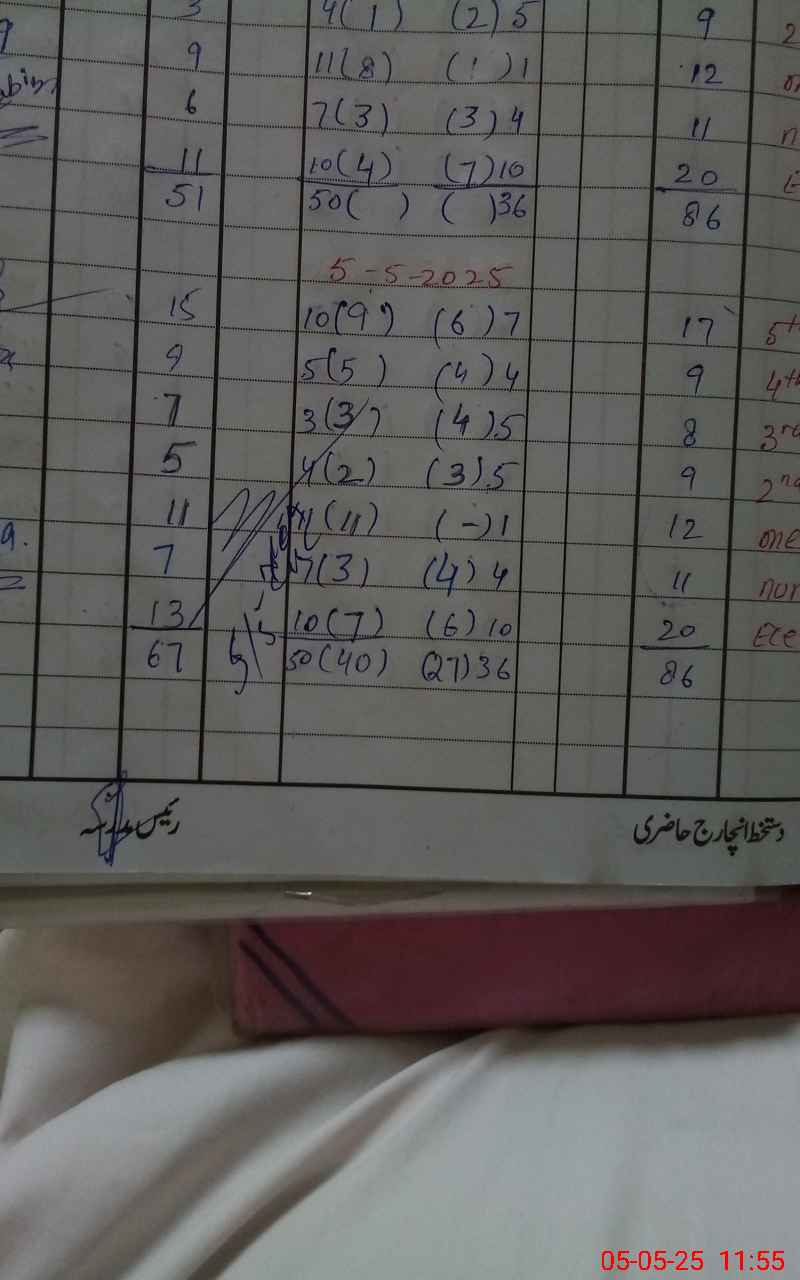 3 4(1) (2)5 9 2
9 11(8) (1)1 12
6 7(3) (3)4 11
11 10(4) (7)10 20
51 50( ) ( )36 86
5-5-2025
15 10(9) (6)7 17 5th
9 5(5) (4)4 9 4th
7 3(3) (4)5 8 3rd
5 4(2) (3)5 9 2nd
11 11(11) (-)1 12 one
7 7(3) (4)4 11 nur
13 10(7) (6)10 20 Ece
67 50(40) (27)36 86
دستخط انچارج حاضری رئیس مدرسہ
05-05-25 11:55